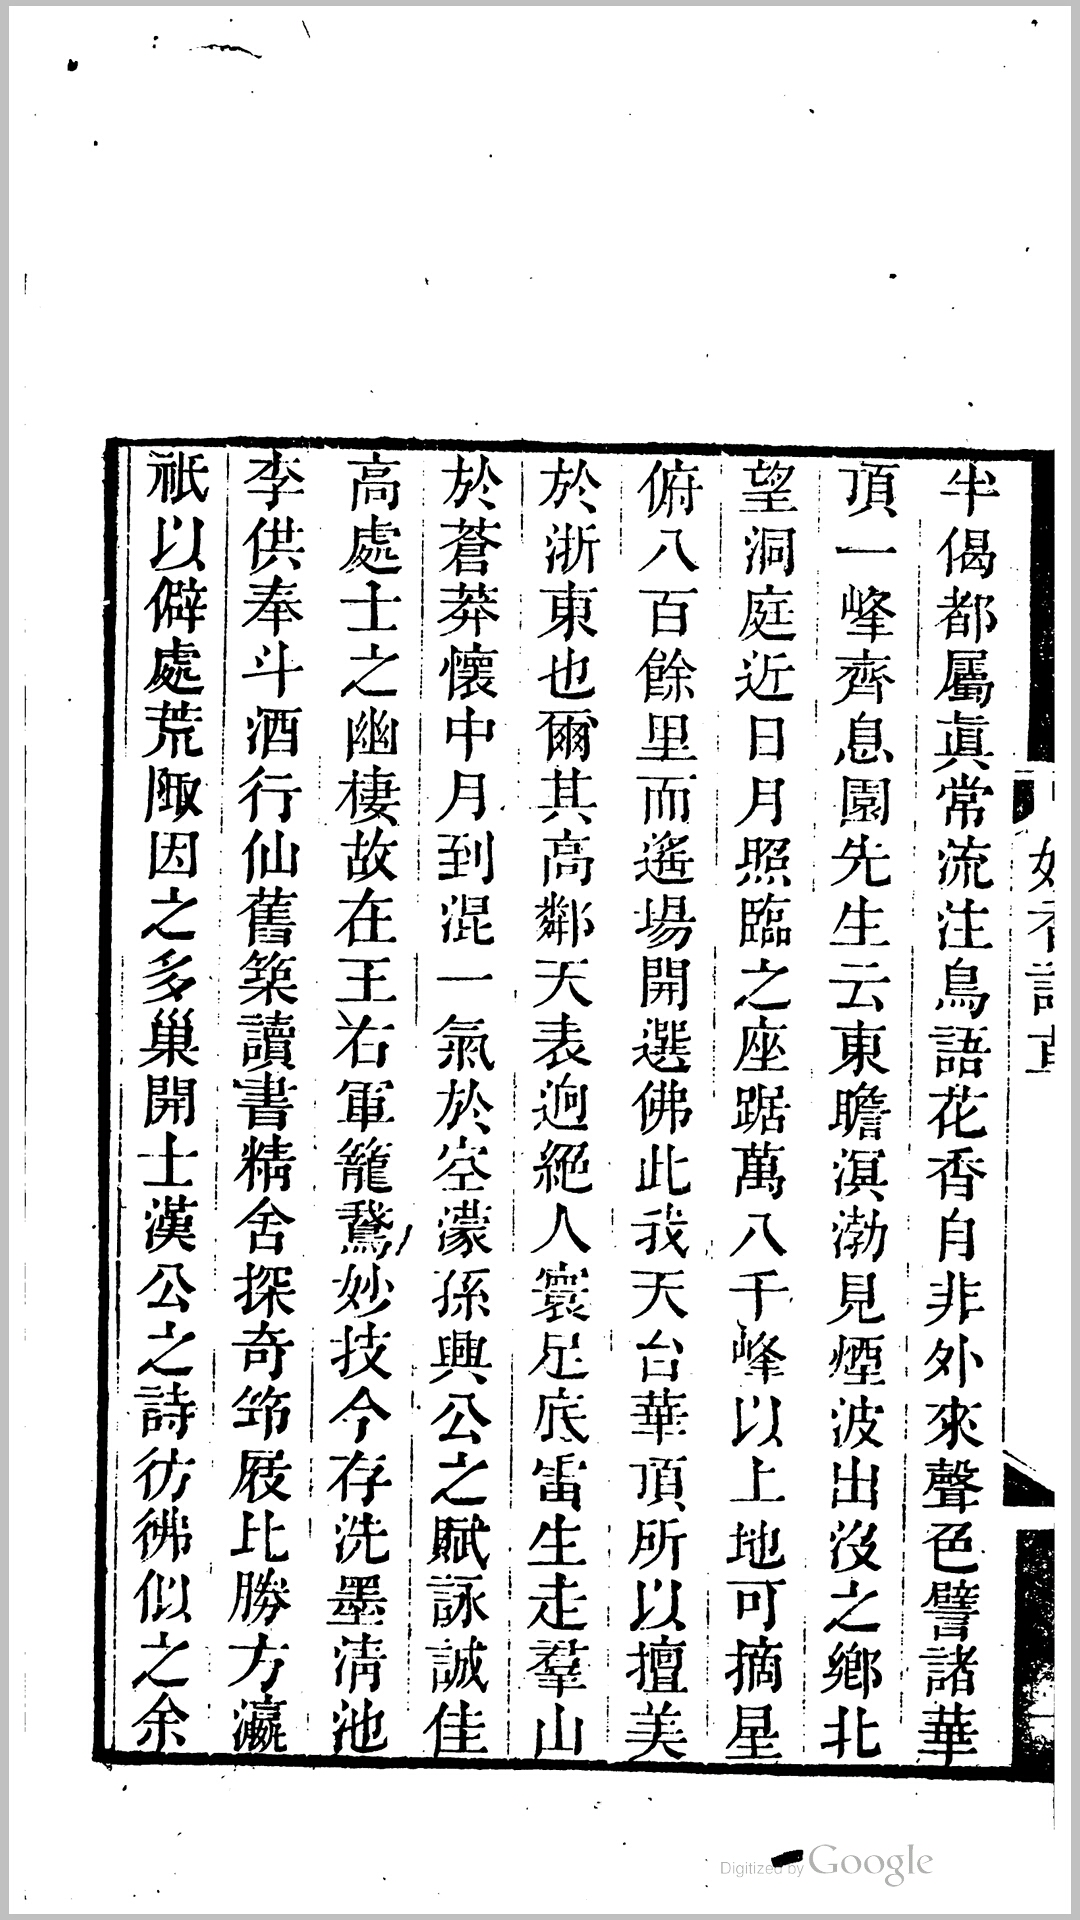 半偈都屬眞常流注鳥語花香自非外來聲色譬諸華
頂一峰齊息園先生云東瞻溟渤見煙波出沒之鄉北
望洞庭近日月照臨之座踞萬八千峰以上地可摘星
俯八百餘里而遙場開選佛此我天台華頂所以擅美
於浙東也爾其高鄰天表逈絕人寰足底雷生走羣山
於蒼莽懷中月到混一氣於空濛孫興公之賦詠誠佳
高處士之幽棲故在王右軍籠鵞妙技今存洗墨清池
李供奉斗酒行仙舊築讀書精舍探奇笻屐比勝方瀛
祇以僻處荒陬因之多巢開士漢公之詩彷彿似之余
Digitized by Google